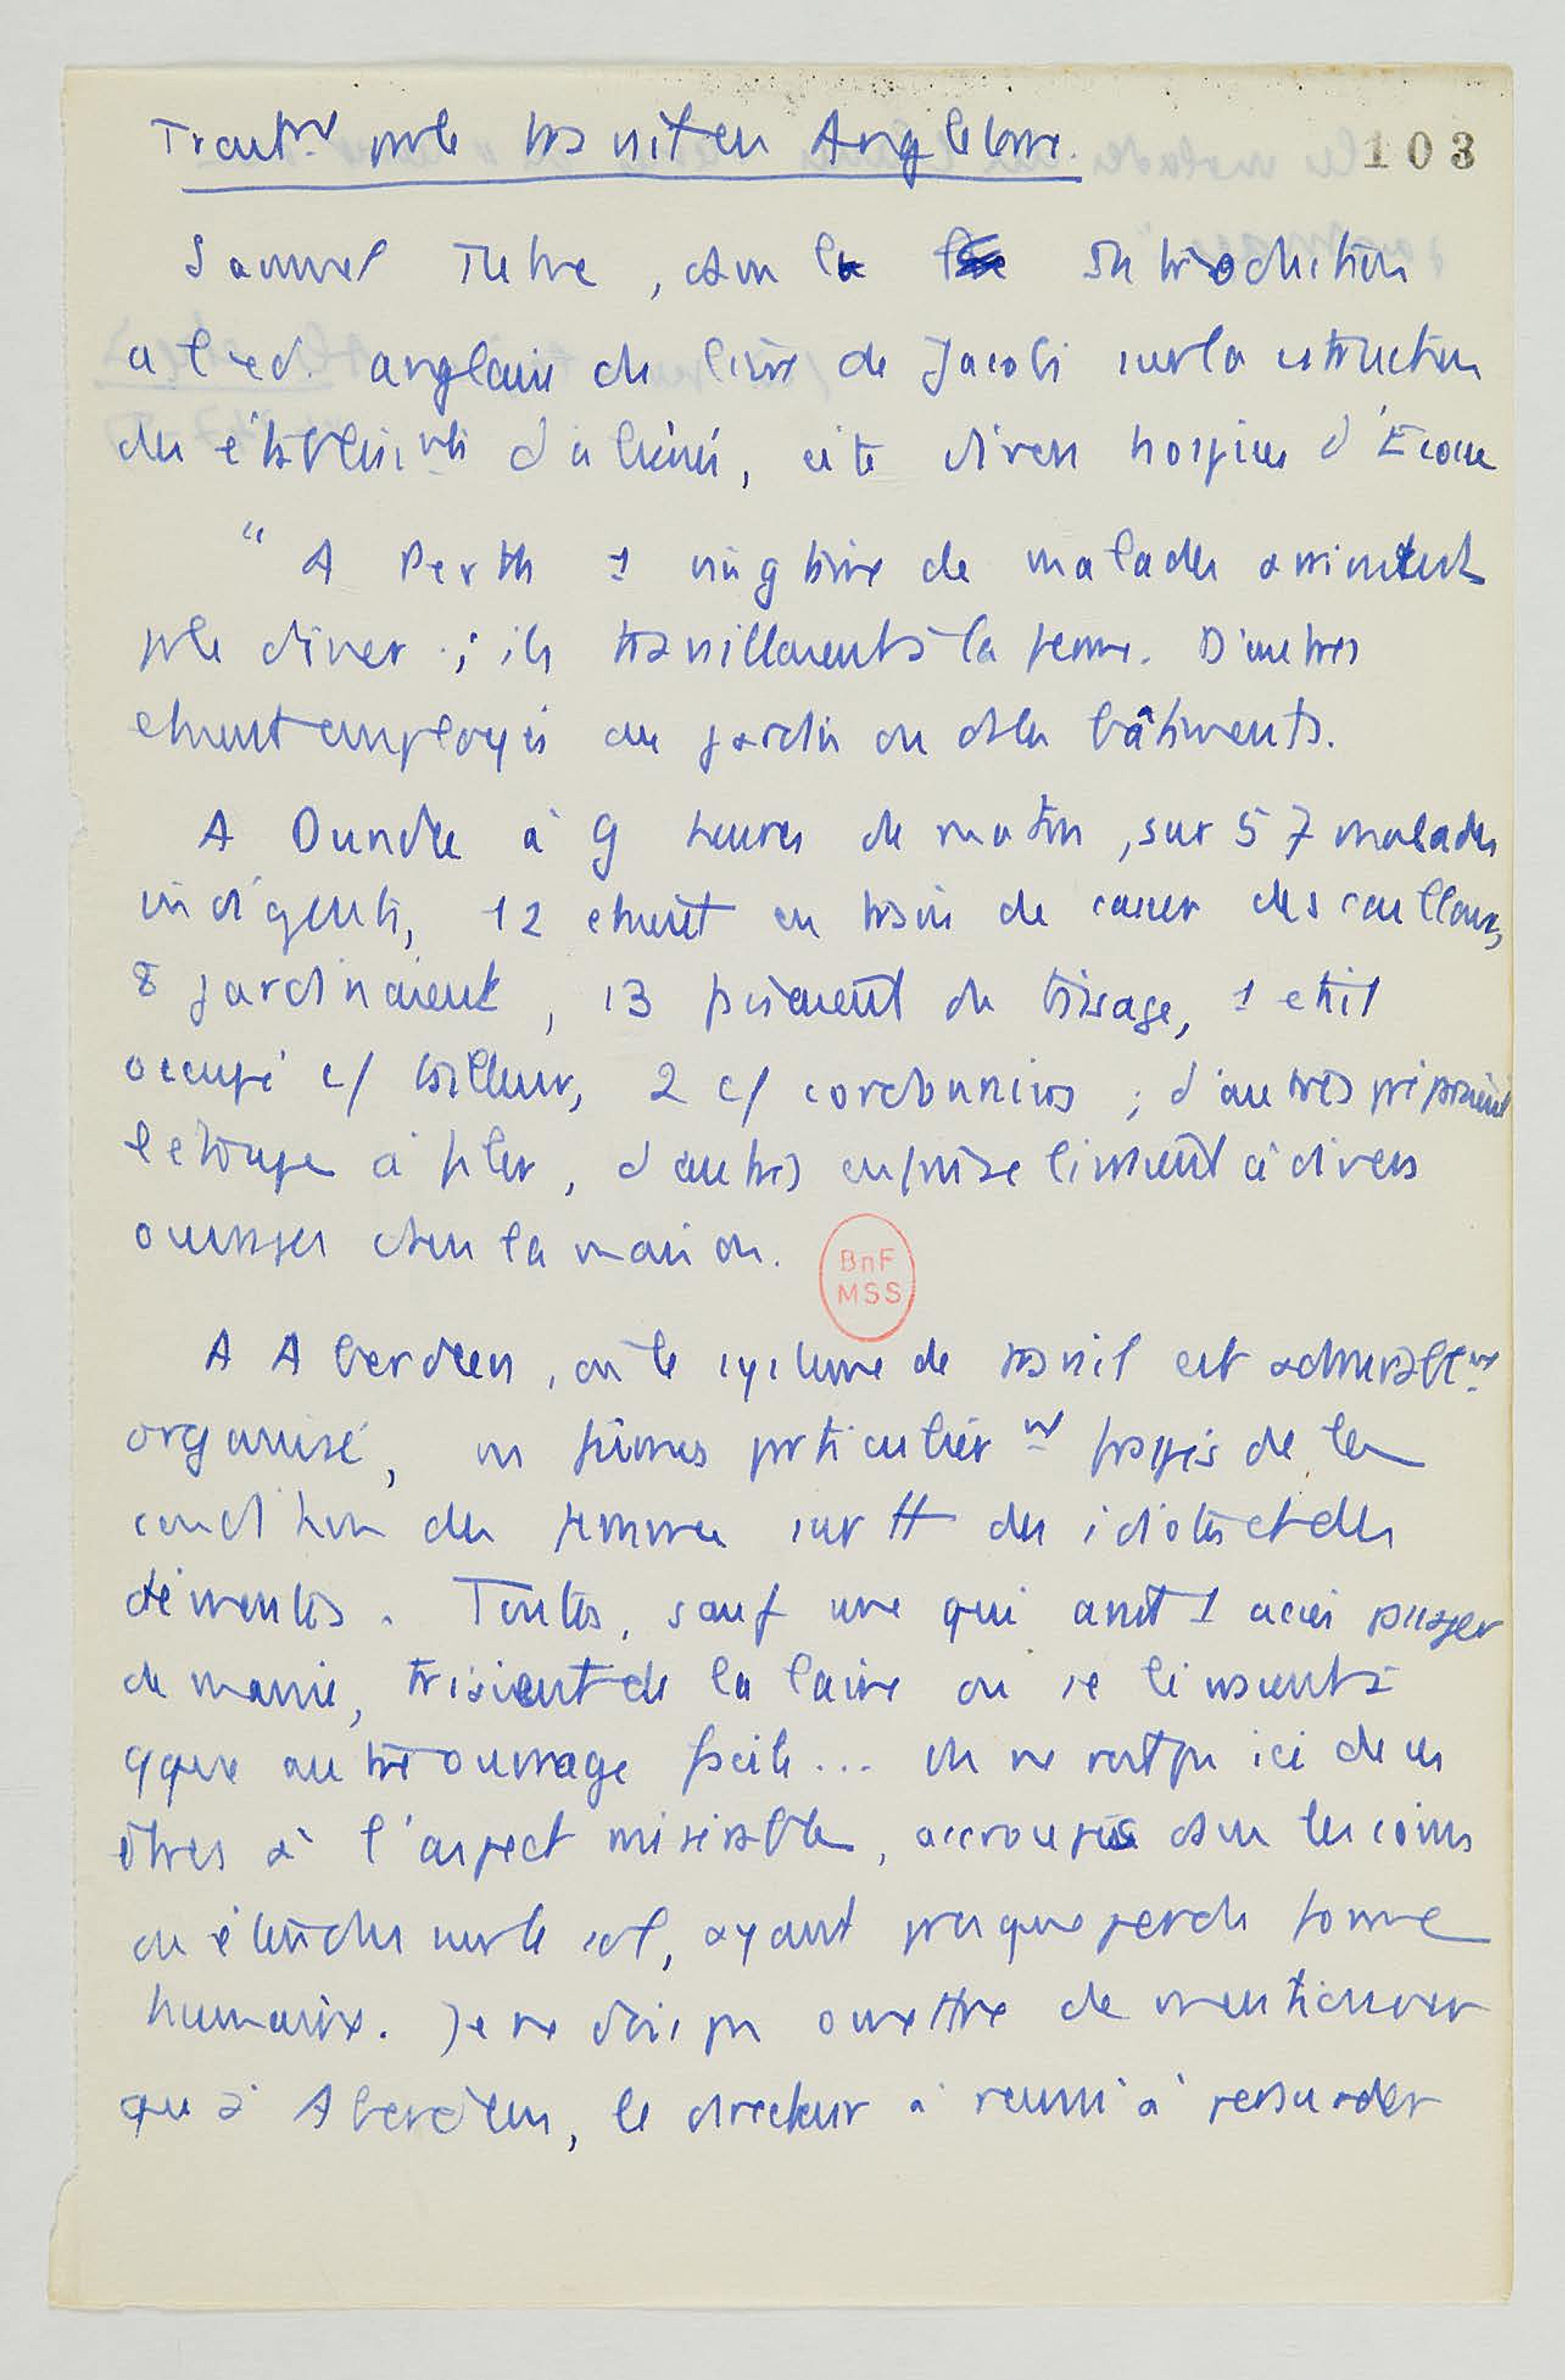 Traitmt par le travail en Angleterre.
103
Samuel Tuke, dans la introduction
a l'ed. anglaise du livre de Jacobi sur la construction
des établissmts d'aliénés, cite divers hospices d'Ecosse
" A Perth 1 vingtaine de malades
pr le dîner ; ils travaillaient à la ferme. D'autres
etaient employés au jardin ou ds les bâtiments.
A Dundee à 9 heures du matin, sur 57 malades
indigents, 12 etaient en train de casser des cailloux,
8 jardinaient, 13 faisaient du tissage, 1 etait
occupé c/ tailleur, 2 c/ cordonniers ; d'autres préparaient
l'etoupe à filer, d'autres enfin se livraient à divers
ouvrages dans la maison.
BnF
MSS
A Aberdeen, où le systeme de travail est admirablemt
organisé, ns fûmes particulièrmt frappés de la
condition des femmes surtt des idiotes et des
démentes. Toutes, sauf une qui avait 1 accès passager
de manie, tricotaient de la laine ou se livraient à
qque autre ouvrage facile... On ne voit pas ici de ces
êtres à l'aspect misérable, accroupis dans les coins
ou étendus sur le sol, ayant presque perdu forme
humaine. Je ne dois pas omettre de mentionner
qu'à Aberdeen, le directeur a reussi à persuader